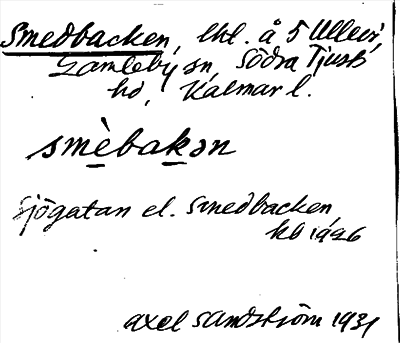 Smedbacken, lht. å 5 Ullevi,
Gamleby sn, Södra Tjusts
hd, Kalmar l.
smèbakən
Sjögatan el. Smedbacken,
kb 1926
Axel Sandström 1931